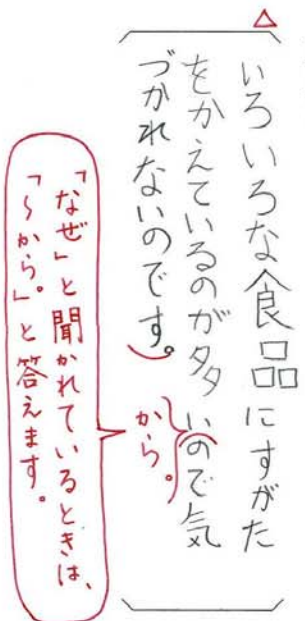 いろいろな食品にすがた
をかえているのが多いので気
づかれないのです。
から。
「なぜ」と聞かれているときは、
「～から。」と答えます。